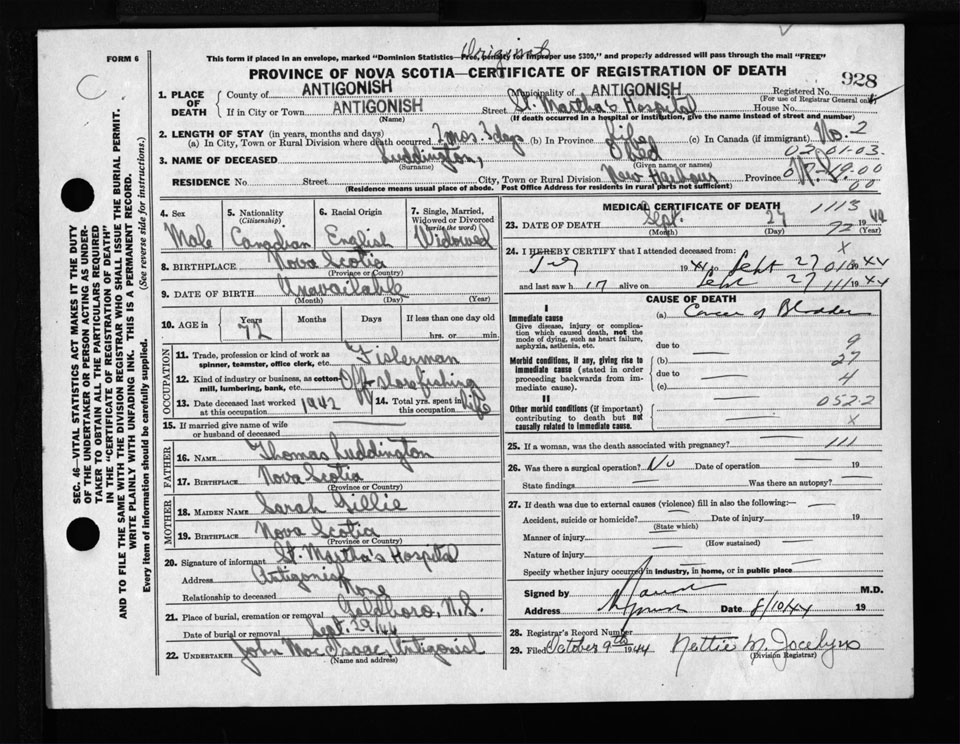 Original
FORM 6
This form if placed in an envelope, marked "Dominion Statistics—Free, penalty for improper use $300," and properly addressed will pass through the mail "FREE"
PROVINCE OF NOVA SCOTIA—CERTIFICATE OF REGISTRATION OF DEATH
928
C
1. PLACE OF DEATH
County of ANTIGONISH Municipality of ANTIGONISH Registered No.
(For use of Registrar General only)
If in City or Town ANTIGONISH Street St. Martha's Hospital House No.
(Name) (If death occurred in a hospital or institution, give the name instead of street and number)
2. LENGTH OF STAY (in years, months and days)
(a) In City, Town or Rural Division where death occurred 2 mos. 3 days (b) In Province Life (c) In Canada (if immigrant) No. 2
02-01-03.
3. NAME OF DECEASED Luddington, Obed
(Surname) (Given name or names)
RESIDENCE No Street City, Town or Rural Division New Harbour Province N.S.
19:00
00
(Residence means usual place of abode. Post Office Address for residents in rural parts not sufficient)
4. Sex Male
5. Nationality (Citizenship) Canadian
6. Racial Origin English
7. Single, Married, Widowed or Divorced (write the word) Widowed
8. BIRTHPLACE Nova Scotia
(Province or Country)
9. DATE OF BIRTH Unavailable
(Month) (Day) (Year)
10. AGE in Years Months Days If less than one day
72 hrs. or min.
OCCUPATION
11. Trade, profession or kind of work as spinner, teamster, office clerk, etc. Fisherman
12. Kind of industry or business, as cotton mill, lumbering, bank, etc. Off shore fishing
13. Date deceased last worked at this occupation 1942
14. Total yrs. spent in this occupation life
15. If married give name of wife or husband of deceased
FATHER
16. NAME Thomas Luddington
17. BIRTHPLACE Nova Scotia
(Province or Country)
MOTHER
18. MAIDEN NAME Sarah Gillie
19. BIRTHPLACE Nova Scotia
(Province or Country)
20. Signature of informant St. Martha's Hospital
Address Antigonish
Relationship to deceased None
21. Place of burial, cremation or removal Goldboro, N.S.
Date of burial or removal Sept. 29/44
22. UNDERTAKER John MacIsaac, Antigonish
(Name and address)
MEDICAL CERTIFICATE OF DEATH
1113
23. DATE OF DEATH Sept. 27 1944
(Month) (Day) (Year)
72
24. I HEREBY CERTIFY that I attended deceased from:
X
1944 to Sept 27 1944
and last saw h alive on Sept 27 1944
111
CAUSE OF DEATH
I
Immediate cause
Give disease, injury or complication which caused death, not the mode of dying, such as heart failure, asphyxia, asthenia, etc.
(a) Cancer of Bladder
due to
9
Morbid conditions, if any, giving rise to immediate cause (stated in order proceeding backwards from immediate cause).
(b)
27
due to
4
(c)
II
Other morbid conditions (if important) contributing to death but not causally related to immediate cause.
052.2
X
25. If a woman, was the death associated with pregnancy? 111
26. Was there a surgical operation? No Date of operation 19
State findings Was there an autopsy?
27. If death was due to external causes (violence) fill in also the following:—
Accident, suicide or homicide? Date of injury 19
(State which)
Manner of injury
(How sustained)
Nature of injury
Specify whether injury occurred in industry, in home, or in public place
Signed by M.D.
Address Date 8/10/44 19
28. Registrar's Record Number
29. Filed October 9th 1944 Nettie M. Jocelyn
(Division Registrar)
SEC. 46—VITAL STATISTICS ACT MAKES IT THE DUTY
OF THE UNDERTAKER OR PERSON ACTING AS UNDER-
TAKER TO OBTAIN ALL THE PARTICULARS REQUIRED
IN THE "CERTIFICATE OF REGISTRATION OF DEATH"
AND TO FILE THE SAME WITH THE DIVISION REGISTRAR WHO SHALL ISSUE THE BURIAL PERMIT.
WRITE PLAINLY WITH UNFADING INK. THIS IS A PERMANENT RECORD.
Every item of information should be carefully supplied. (See reverse side for instructions.)